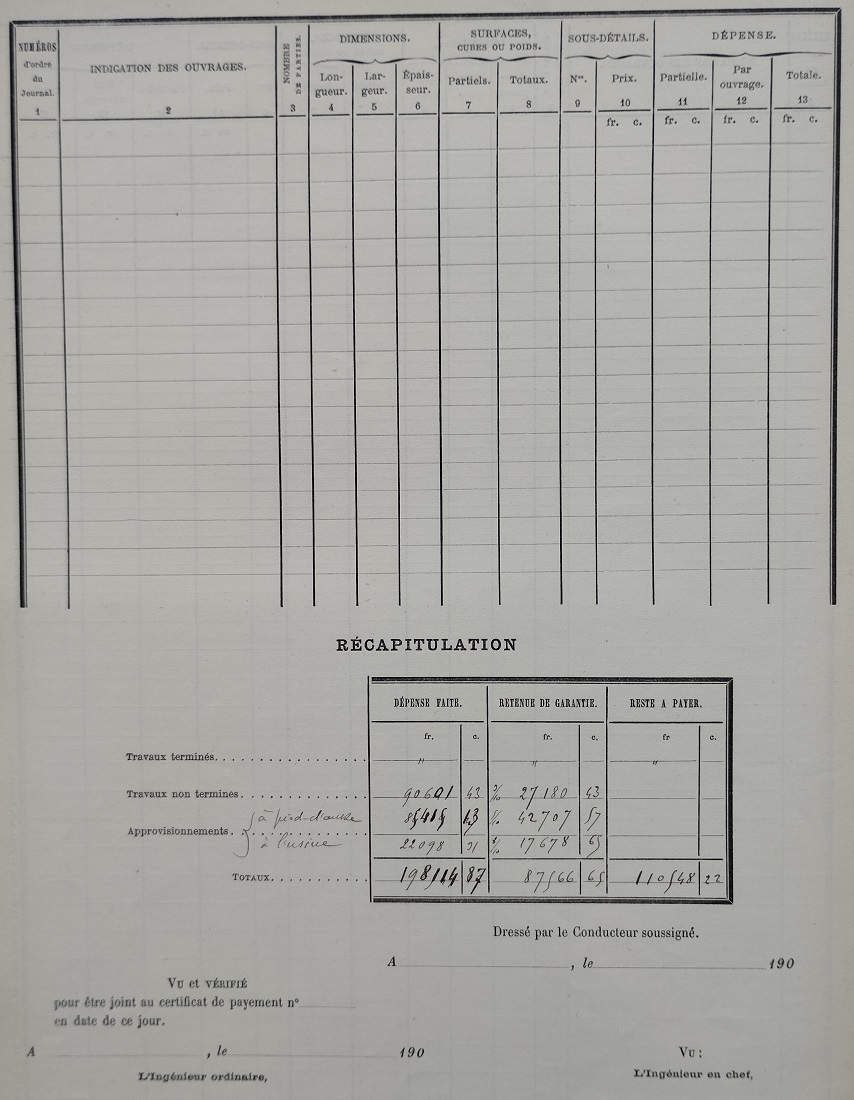 NUMÉROS
d'ordre
du
Journal.
1
INDICATION DES OUVRAGES.
2
NOMBRE
DE PARTIES.
3
DIMENSIONS.
Lon-
gueur.
4
Lar-
geur.
5
Épais-
seur.
6
SURFACES,
CUBES OU POIDS.
Partiels.
7
Totaux.
8
SOUS-DÉTAILS.
Nos.
9
Prix.
10
fr. c.
DÉPENSE.
Partielle.
11
fr. c.
Par
ouvrage.
12
fr. c.
Totale.
13
fr. c.
RÉCAPITULATION
DÉPENSE FAITE. RETENUE DE GARANTIE. RESTE A PAYER.
fr. c. fr. c. fr c.
Travaux terminés. . . . . . . . . . . . . . . . . " " "
Travaux non terminés. . . . . . . . . . . . . . 90601 43 3/10 27180 43
Approvisionnements. { à pied-d'œuvre 85415 13 5/10 42707 57
à l'usine 22098 31 8/10 17678 65
TOTAUX. . . . . . . . . . . 198114 87 87566 65 110548 22
Dressé par le Conducteur soussigné.
A , le 190
VU et VÉRIFIÉ
pour être joint au certificat de payement n°
en date de ce jour.
A , le 190
L'Ingénieur ordinaire,
VU :
L'Ingénieur en chef,